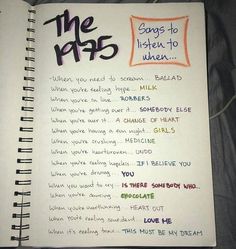 The
1975
Songs to
listen to
when...
When you need to scream... BALLAD
When you're feeling hype... MILK
When you're in love... ROBBERS
When you're getting over it... SOMEBODY ELSE
When you're over it... A CHANGE OF HEART
When you're having a fun night... GIRLS
When you're crushing... MEDICINE
When you're heartbroken... UNDO
When you're feeling hopeless... IF I BELIEVE YOU
When you're driving... YOU
When you want to cry... IS THERE SOMEBODY WHO...
When you're dancing CHOCOLATE
When you're overthinking... HEART OUT
When you're feeling confident... LOVE ME
When it's feeling toxic... THIS MUST BE MY DREAM